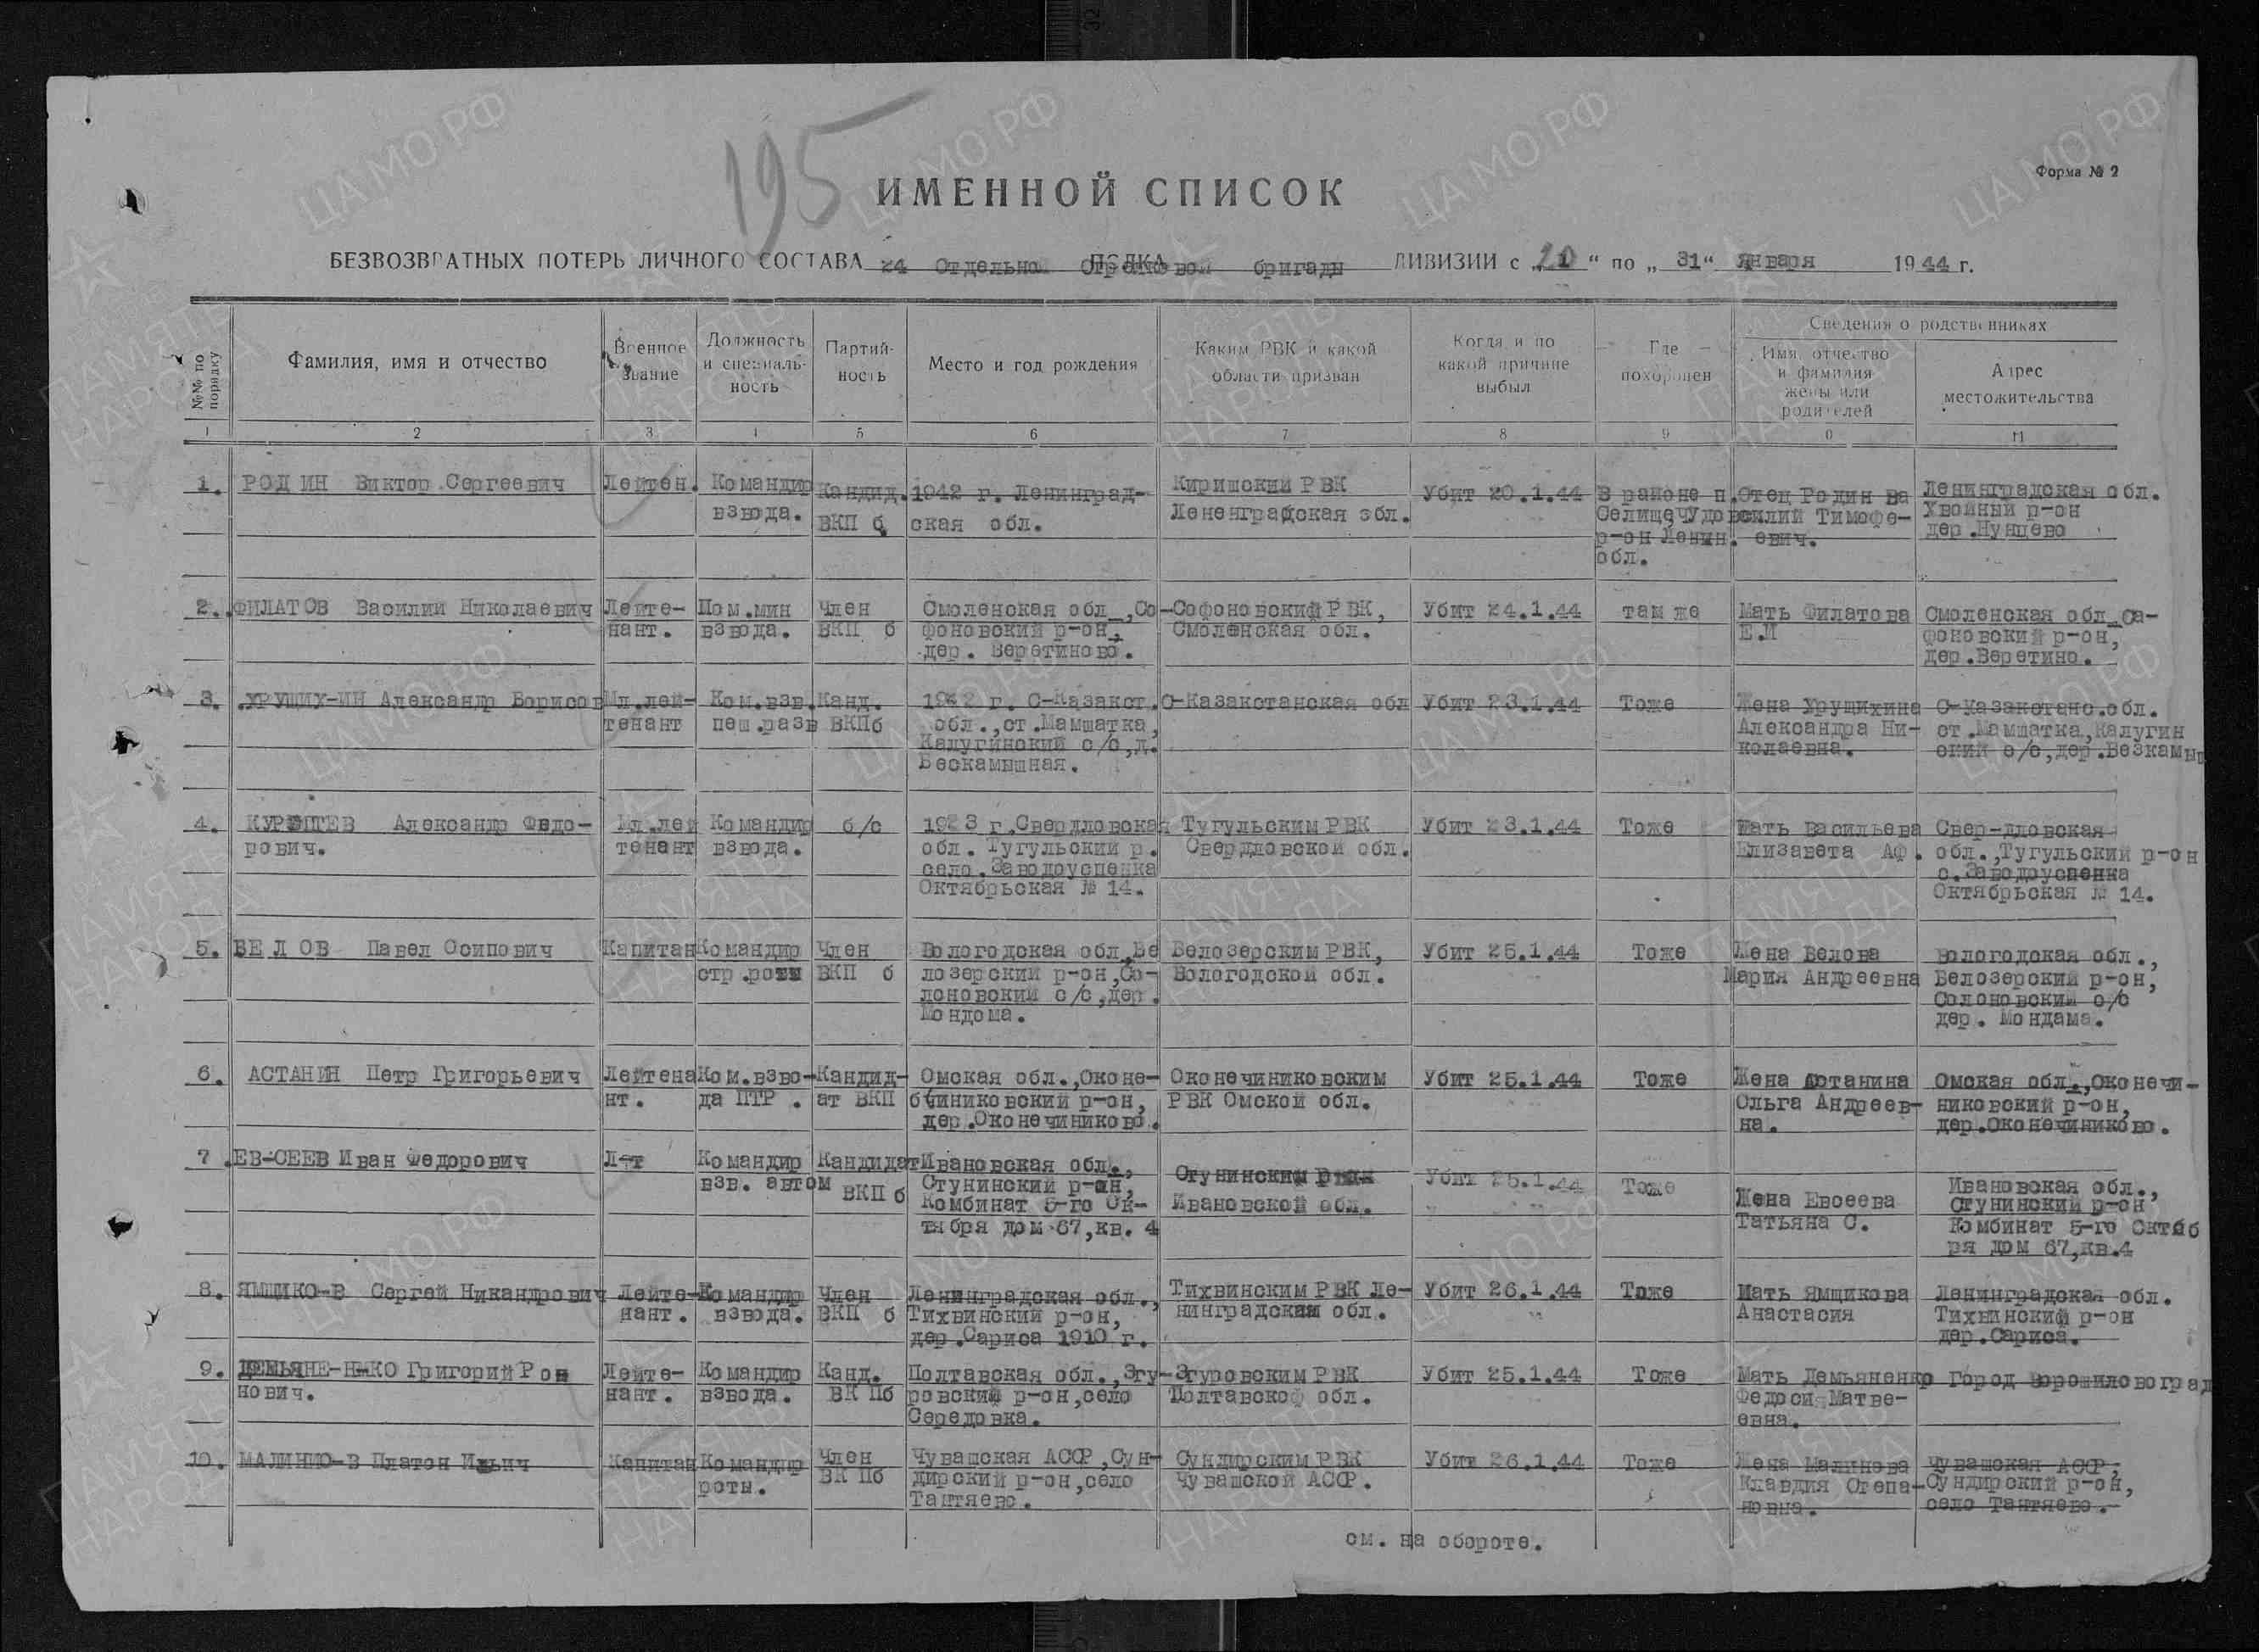 195
Форма № 2
ИМЕННОЙ СПИСОК
БЕЗВОЗВРАТНЫХ ПОТЕРЬ ЛИЧНОГО СОСТАВА 24 Отдельно Стрелковой бригады ДИВИЗИИ с „20“ по „31“ Января 1944 г.
№№ по порядку
Фамилия, имя и отчество
Военное звание
Должность и специаль-ность
Партий-ность
Место и год рождения
Каким РВК и какой области призван
Когда и по какой причине выбыл
Где похоронен
Сведения о родственниках
Имя, отчество и фамилия жены или родителей
Адрес местожительства
1 2 3 4 5 6 7 8 9 0 11
1. РОДИН Виктор Сергеевич Лейтен. Командир Кандид. 1942 г. Ленинград- Киришский РВК Убит 20.1.44 В районе п. Отец Родин Ва Ленинградская обл.
взвода. ВКП б ская обл. Лененградская обл. Селище Чудов силий Тимофе- Хвойный р-он
р-он Ленин. евич. дер.Нунцево
обл.
2. ФИЛАТОВ Василий Николаевич Лейте- Пом.мин Член Смоленская обл.,Со- Софоновский РВК, Убит 24.1.44 там же Мать Филатова Смоленская обл. Са-
нант. взвода. ВКП б фоновский р-он, Смоленская обл. Е.И фоновский р-он,
дер. Веретиново. дер.Веретино.
3. ХРУЩИХ-ИН Александр Борисов Мл.лей- Ком.взв. Канд. 1922 г. С-Казакст. С-Казакстанская обл Убит 23.1.44 Тоже Жена Хрущихина С-Казакстанс.обл.
тенант пеш.разв ВКПб обл.,ст.Мамшатка, Александра Ни- ст.Мамшатка,Калугин
Калугинский с/с,д. колаевна. ский с/с,дер.Безкамыш
Бескамышная.
4. Александр Федо- Мл.лей Командир б/с 1923 г.Свердловская Тугульским РВК Убит 23.1.44 Тоже Мать Васильева Свер-дловская
рович. тенант взвода. обл. Тугульский р. Свердловской обл. Елизавета Аф. обл.,Тугульский р-он
село.Заводоуспенка с.Заводоуспенка
Октябрьская № 14. Октябрьская № 14.
5. БЕЛОВ Павел Осипович Капитан Командир Член Вологодская обл.Бе Белозерским РВК, Убит 25.1.44 Тоже Жена Белова Вологодская обл.,
стр.роты ВКП б лозерский р-он,Со- Вологодской обл. Мария Андреевна Белозерский р-он,
лоновский с/с,дер. Солоновский с/с
Мондома. дер. Мондама.
6. АСТАНИН Петр Григорьевич Лейтена Ком.взво- Кандид- Омская обл.,Оконе- Оконечиниковским Убит 25.1.44 Тоже Жена Астанина Омская обл.,Оконечи-
нт. да ПТР. ат ВКП б чиниковский р-он, РВК Омской обл. Ольга Андреев- никовский р-он,
дер.Оконечиниково. на. дер.Оконечиниково.
7. ЕВ-СЕЕВ Иван Федорович Л-т Командир Кандидат Ивановская обл., Стунинским Убит 25.1.44 Тоже Жена Евсеева Ивановская обл.,
взв. автом ВКП б Стунинский р-он, Ивановской обл. Татьяна С. Стунинский р-он
Комбинат 5-го Ок- Комбинат 5-го Октяб
тября дом 67,кв. 4 ря дом 67,кв.4
8. ЯМЩИКО-В Сергей Никандрович Лейте- Командир Член Ленинградская обл., Тихвинским РВК Ле- Убит 26.1.44 Тоже Мать Ямщикова Ленинградская обл.
нант. взвода. ВКП б Тихвинский р-он, нинградская обл. Анастасия Тихвинский р-он
дер.Сариса 1910 г. дер.Сариса.
9. ДЕМЬЯНЕ-НКО Григорий Рон Лейте- Командир Канд. Полтавская обл.,Згу- Згуровским РВК Убит 25.1.44 Тоже Мать Демьяненко Город Ворошиловоград
нович. нант. взвода. ВКПб ровский р-он,село Полтавской обл. Федосия Матве-
Середовка. евна.
10. МАЛИНИО-В Платон Ильич Капитан Командир Член Чувашская АССР,Сун- Сундирским РВК Убит 26.1.44 Тоже Жена Малинова Чувашская АССР,
роты. ВКПб дирский р-он,село Чувашской АССР. Клавдия Степа- Сундирский р-он,
Тантяево. новна. село Тантяево.
см. на обороте.